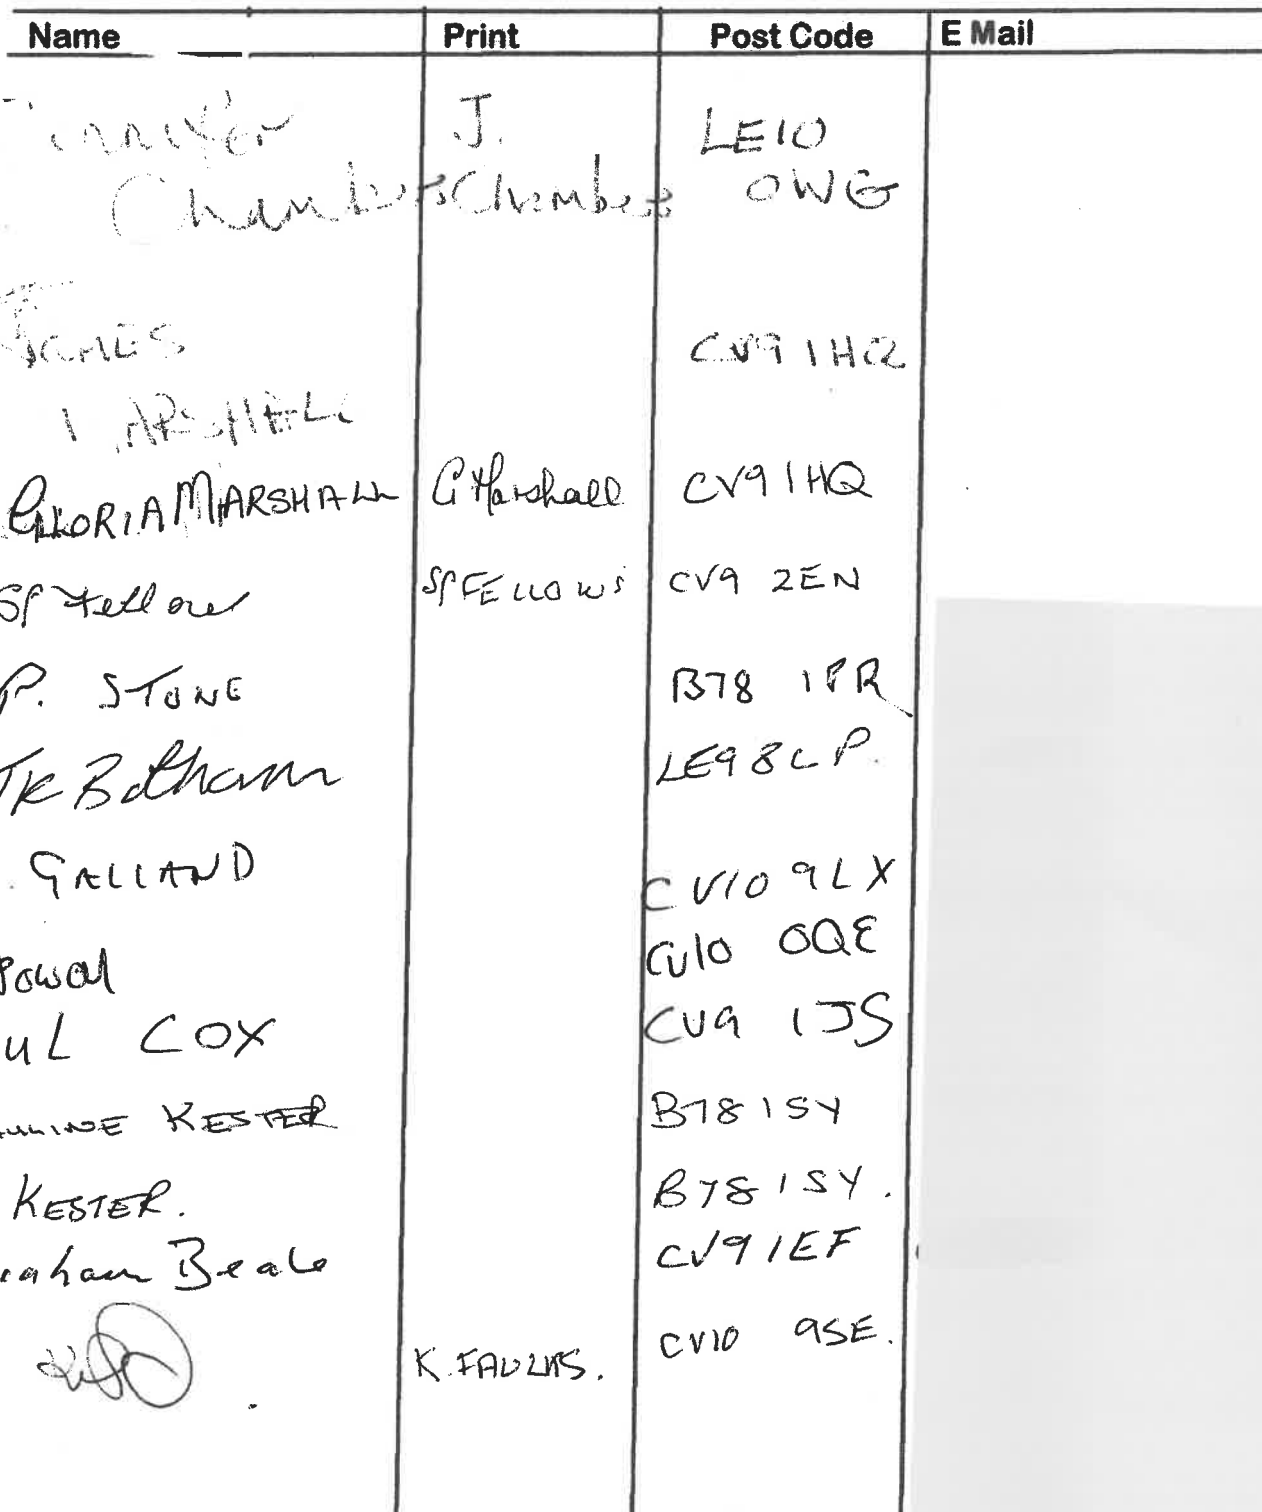 Name Print Post Code E Mail
Jennifer J. LE10
Chambers Chambers 0WG
JAMES CV9 1HQ
MARSHALL
GLORIA MARSHALL G Marshall CV9 1HQ
SP Fellows SP FELLOWS CV9 2EN
P. STONE B78 1PR
TK Botham LE9 8LP.
GALLAND CV10 9LX
Powell CV10 0QE
UL COX CV9 1JS
KESTER B78 1SY
KESTER. B78 1SY.
raham Beale CV9 1EF
K. CV10 9SE.